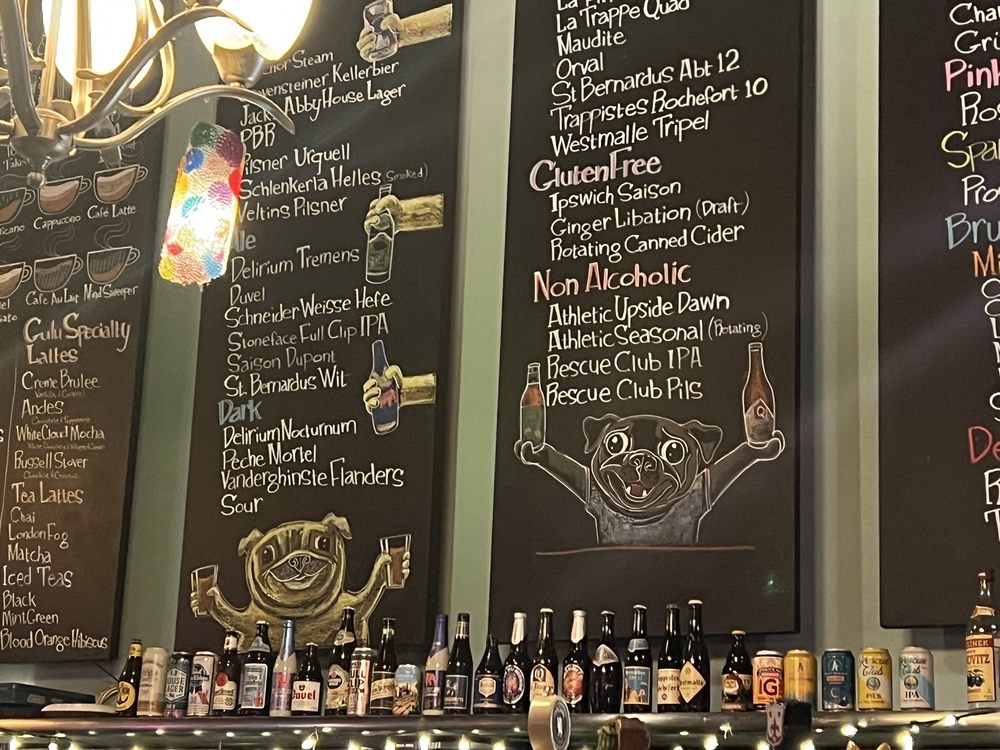 Cappuccino
Café Latte
Cafe Au Lait
Mind Sweeper
Gulu Specialty
Lattes
Creme Brulee
Andes
White Cloud Mocha
Russell Stover
Tea Lattes
Chai
London Fog
Matcha
Iced Teas
Black
Mint Green
Blood Orange Hibiscus
Steam
Kellerbier
Jack's Abby House Lager
PBR
Pilsner Urquell
Schlenkerla Helles (Smoked)
Veltins Pilsner
Ale
Delirium Tremens
Duvel
Schneider Weisse Hefe
Stoneface Full Clip IPA
Saison Dupont
St. Bernardus Wit
Dark
Delirium Nocturnum
Peche Mortel
Vanderghinste Flanders
Sour
La Trappe Quad
Maudite
Orval
St Bernardus Abt 12
Trappistes Rochefort 10
Westmalle Tripel
Gluten Free
Ipswich Saison
Ginger Libation (Draft)
Rotating Canned Cider
Non Alcoholic
Athletic Upside Dawn
Athletic Seasonal (Rotating)
Rescue Club IPA
Rescue Club Pils
Q
Duvel
IG
Rescue Club
PILS
Rescue Club
IPA